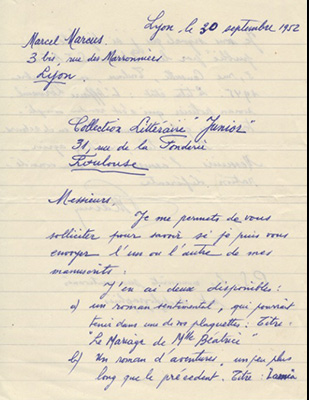 Lyon le 30 septembre 1952
Marcel Marcus
3 bis, rue des Marronniers
Lyon.
Collection Littéraire "Junior"
31, rue de la Fonderie
Toulouse
Messieurs,
Je me permets de vous
solliciter pour savoir si je puis vous
envoyer l'un ou l'autre de mes
manuscrits.
J'en ai deux disponibles:
a) un roman sentimental, qui pourrait
tenir dans une de vos plaquettes. Titre:
"Le Mariage de Mlle Béatrice"
b) Un roman d'aventures, un peu plus
long que le précédent. Titre: Lamia